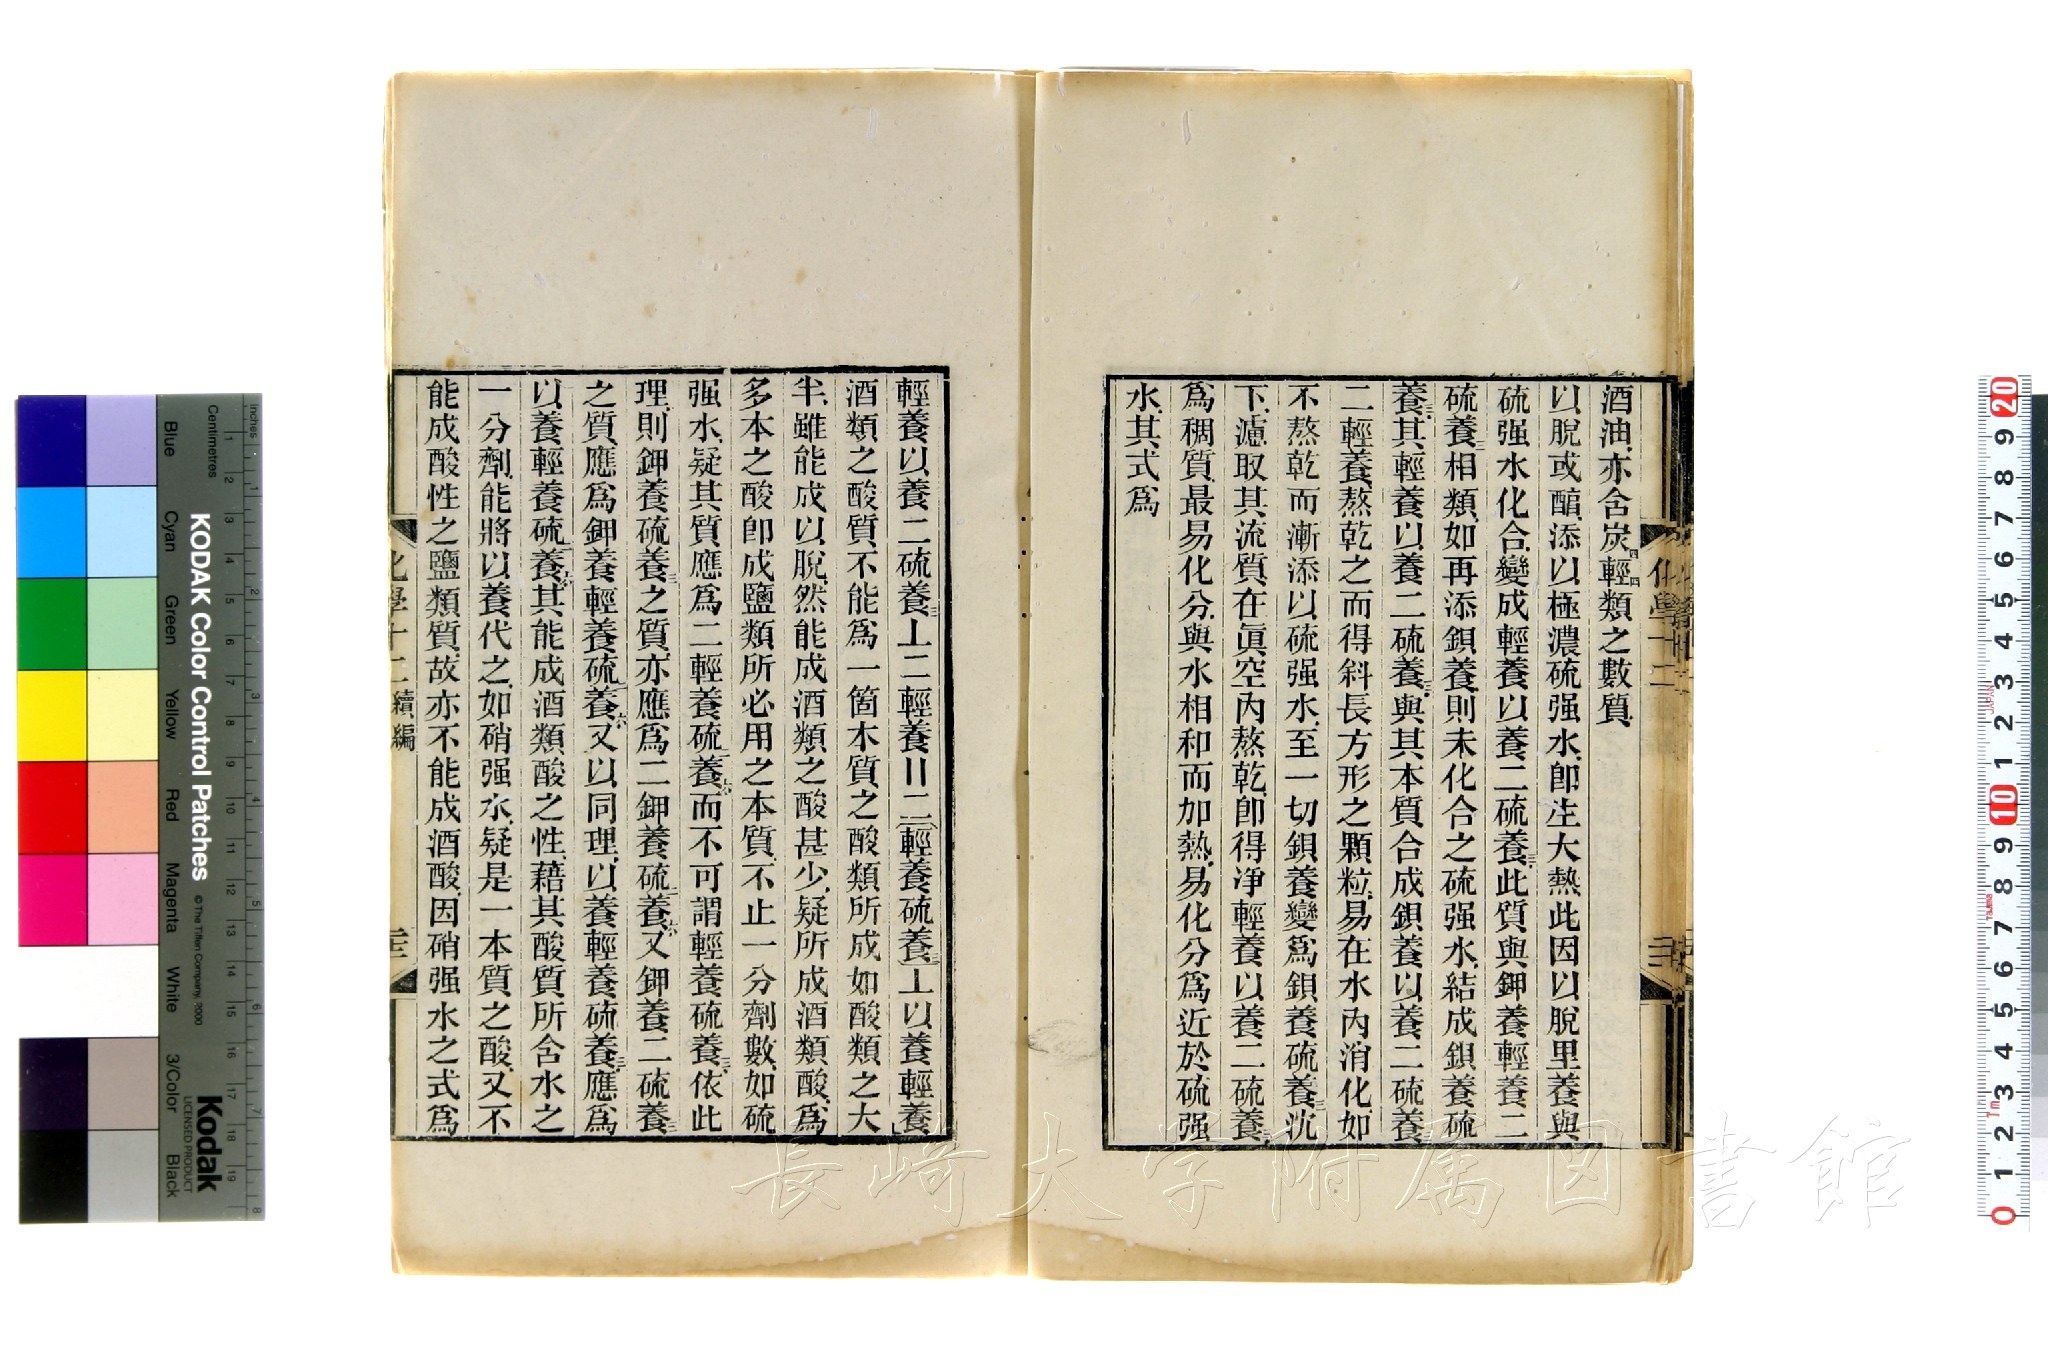 酒油、亦含炭四輕四類之數質、
以脫或醕、添以極濃硫强水、卽生大熱、此因以脫里養與
硫强水化合、變成輕養以養二硫養三、此質與鉀養輕養二
硫養三相類、如再添鋇養、則未化合之硫强水、結成鋇養硫
養三、其輕養以養二硫養三、與其本質合成鋇養以養二硫養
二輕養、熬乾之而得斜長方形之顆粒、易在水內消化、如
不熬乾而漸添以硫强水、至一切鋇養變爲鋇養硫養三沉
下、濾取其流質、在眞空內熬乾、卽得淨輕養以養二硫養三、
爲稠質、最易化分、與水相和而加熱、易化分爲近於硫强
水、其式爲
化學十二
輕養以養二硫養三⊥二輕養〢二(輕養硫養三)⊥以養、輕養、
酒類之酸質、不能爲一箇本質之酸類所成、如酸類之大
半、雖能成以脫、然能成酒類之酸甚少、疑所成酒類酸、爲
多本之酸、卽成鹽類所必用之本質、不止一分劑數、如硫
强水、疑其質應爲二輕養硫二養六、而不可謂輕養硫養三、依此
理、則鉀養硫養三之質、亦應爲二鉀養硫二養六、又鉀養二硫養三
之質、應爲鉀養輕養硫二養六、又以同理、以養輕養硫養三、應爲
以養輕養硫二養六、其能成酒類酸之性、藉其酸質所含水之
一分劑、能將以養代之、如硝强水、疑是一本質之酸、又不
能成酸性之鹽類質、故亦不能成酒酸、因硝强水之式爲
化學十二 續編
KODAK Color Control Patches
© The Tiffen Company, 2000
Kodak
LICENSED PRODUCT
Inches
Centimetres
Blue
Cyan
Green
Yellow
Red
Magenta
White
3/Color
Black
長崎大学附属図書館